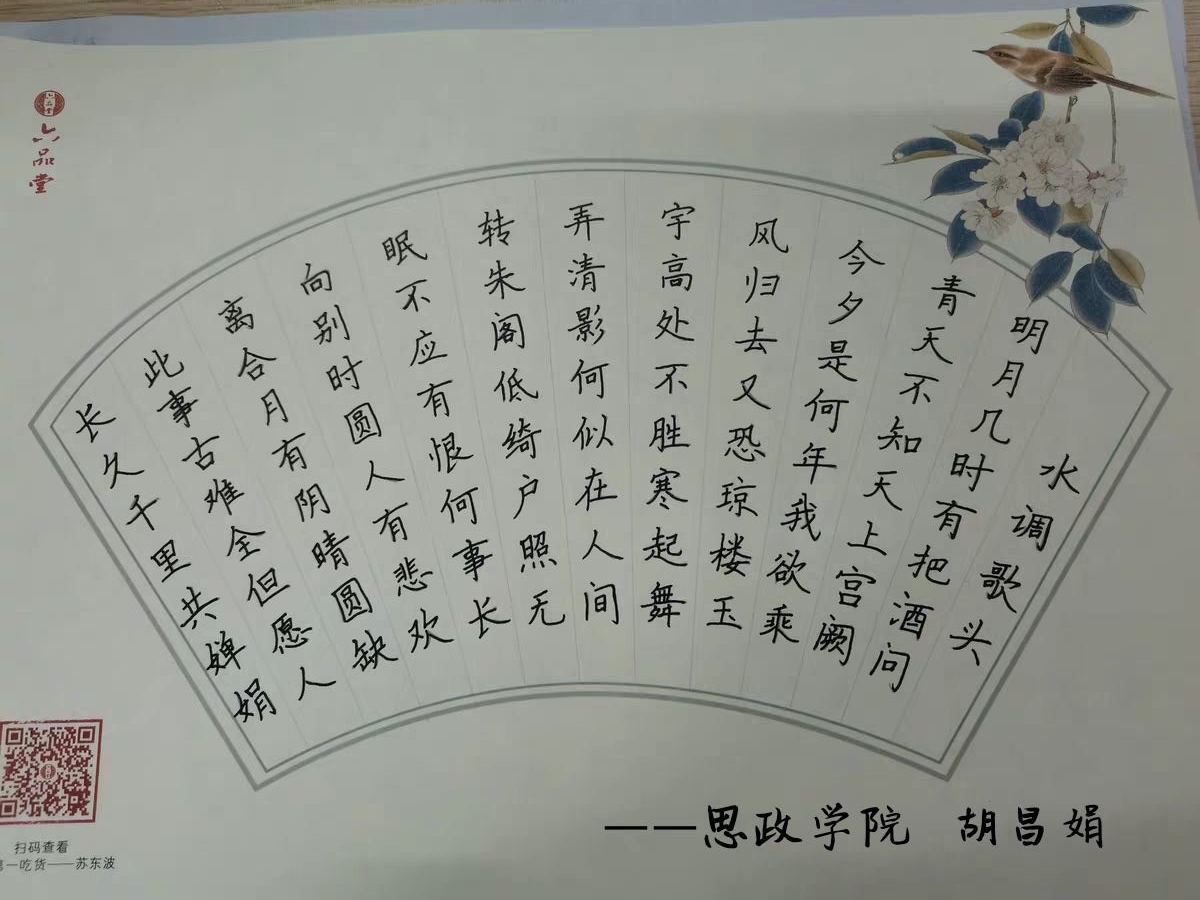 水调歌头
明月几时有把酒问
青天不知天上宫阙
今夕是何年我欲乘
风归去又恐琼楼玉
宇高处不胜寒起舞
弄清影何似在人间
转朱阁低绮户照无
眠不应有恨何事长
向别时圆人有悲欢
离合月有阴晴圆缺
此事古难全但愿人
长久千里共婵娟
六品堂
扫码查看
第一吃货——苏东坡
——思政学院 胡昌娟